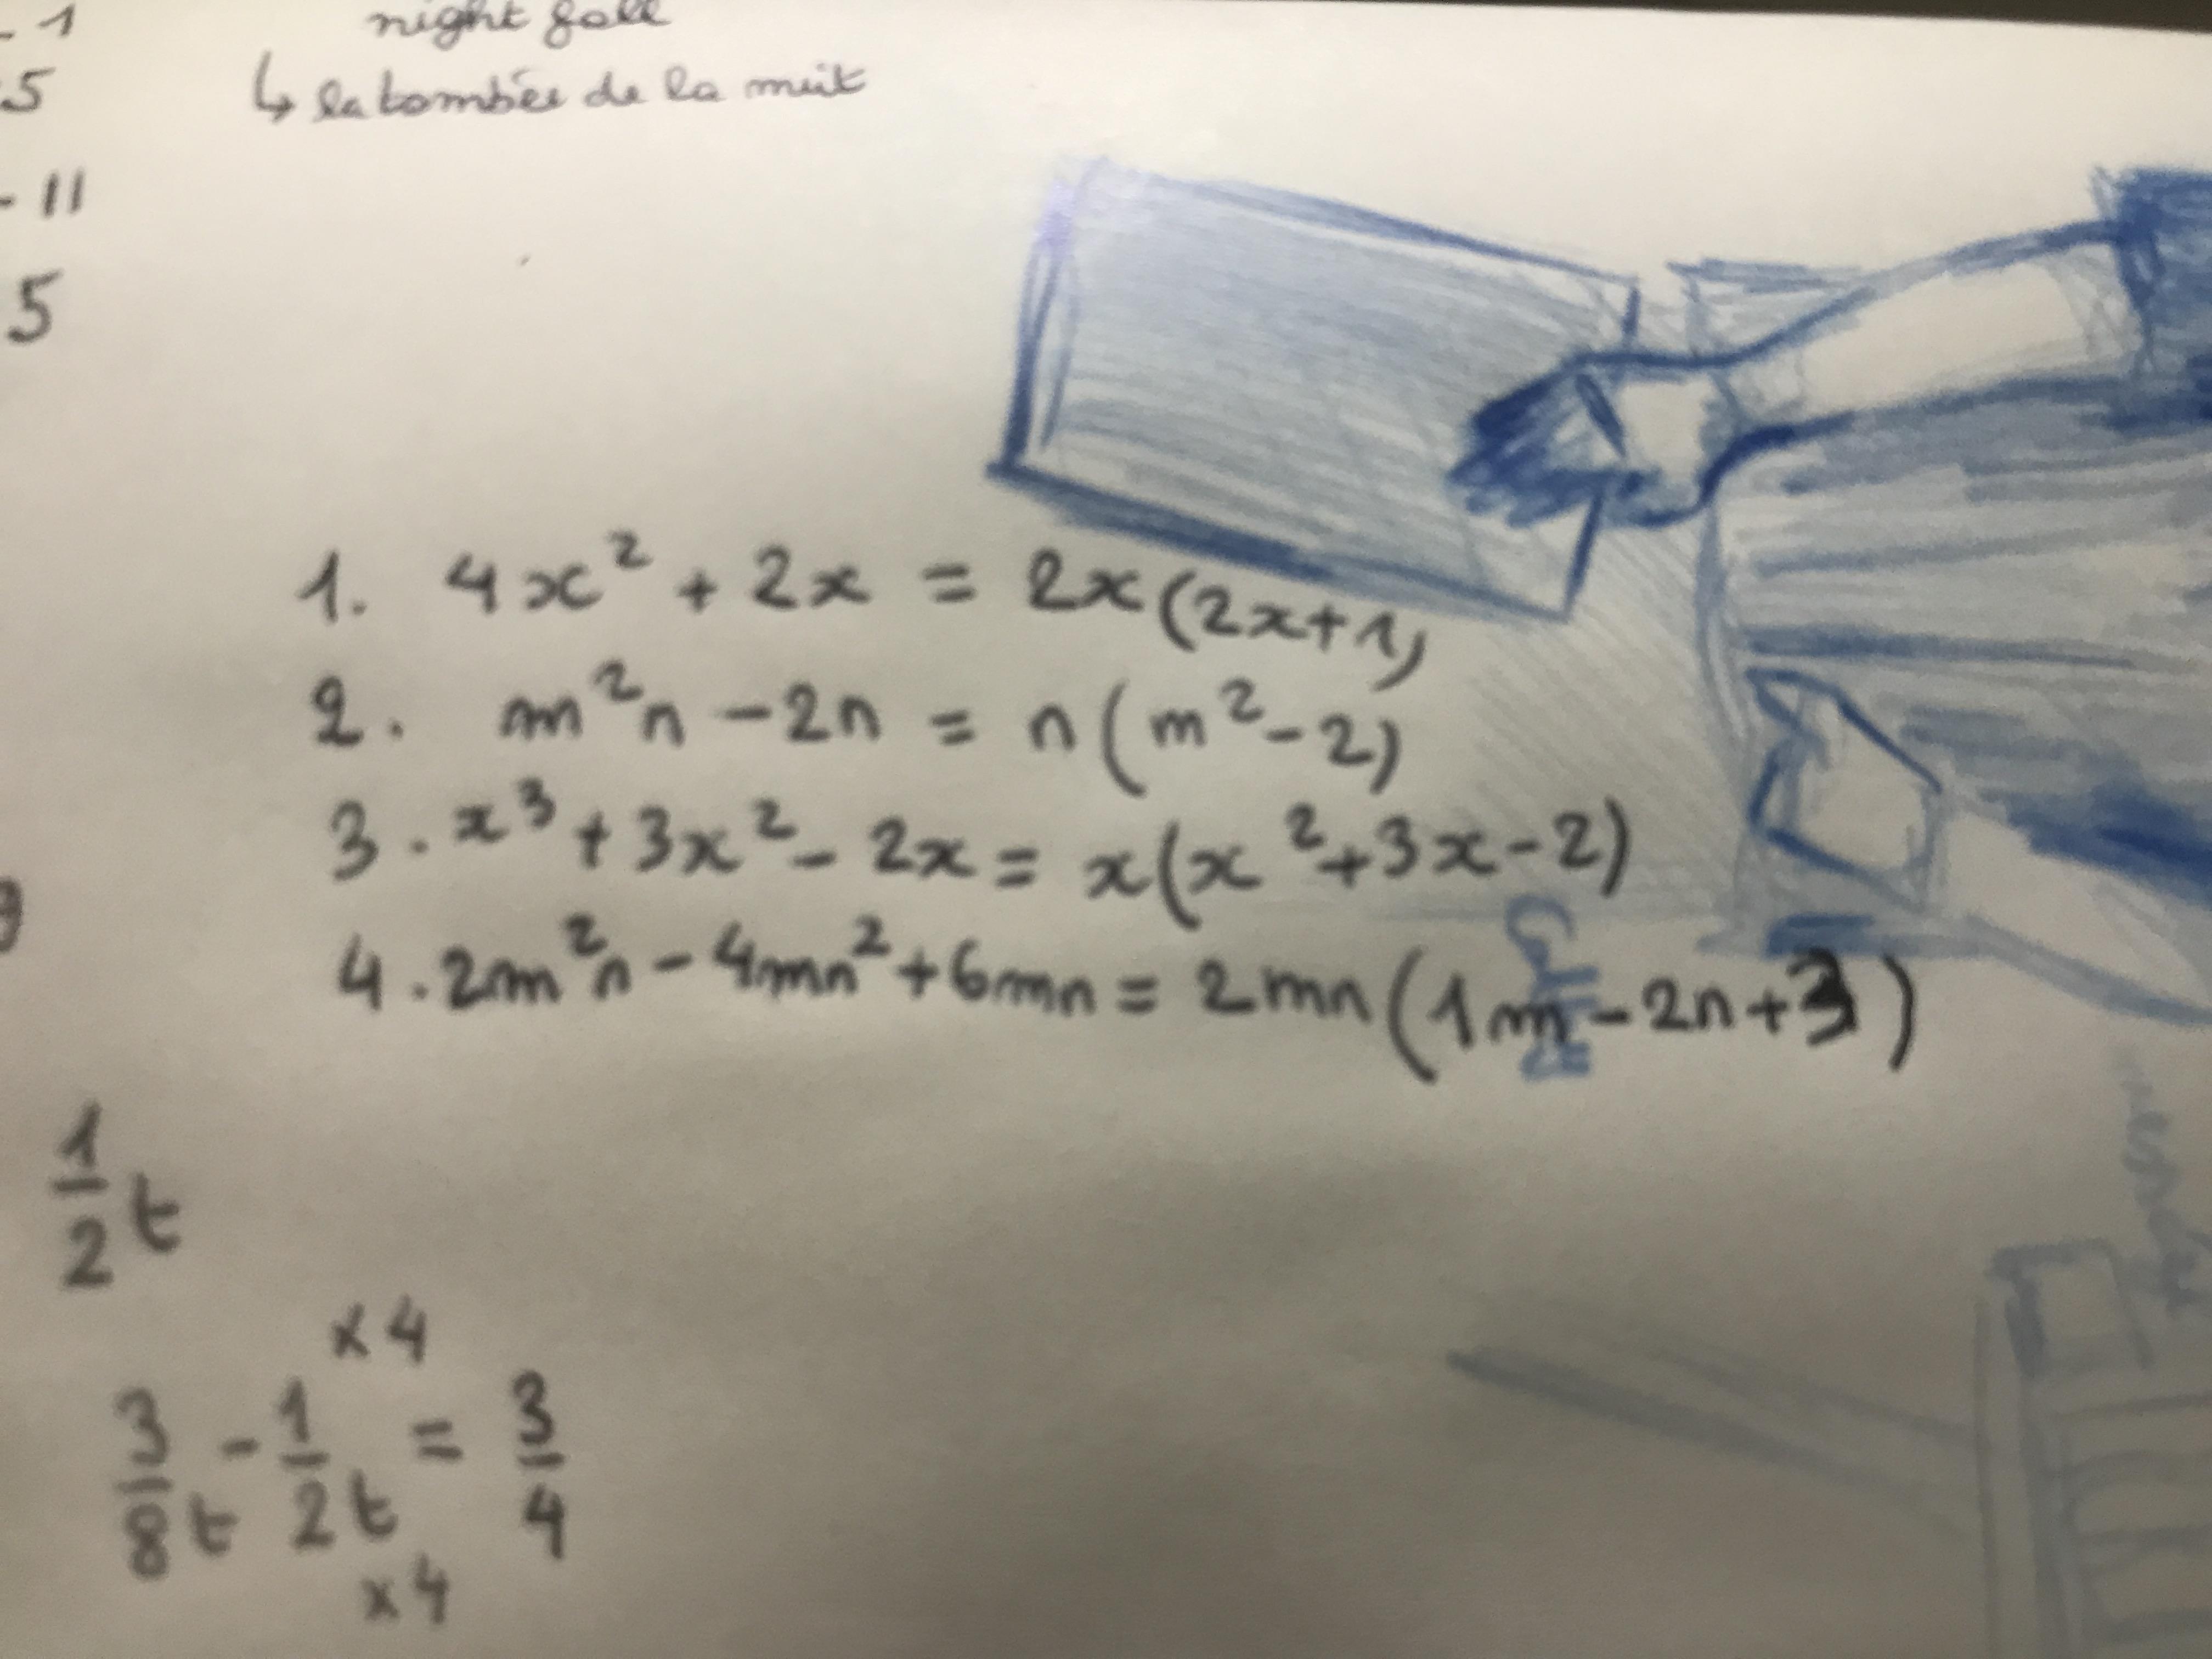 - 1
night fall
5
↳ la tombée de la nuit
- 11
5
1. 4x² + 2x = 2x(2x+1)
2. m²n - 2n = n(m² - 2)
3. x³ + 3x² - 2x = x(x² + 3x - 2)
4. 2m²n - 4mn² + 6mn = 2mn(1m - 2n + 3)
1/2 t
x 4
3/8 t - 1/2 t = 3/4
x 4